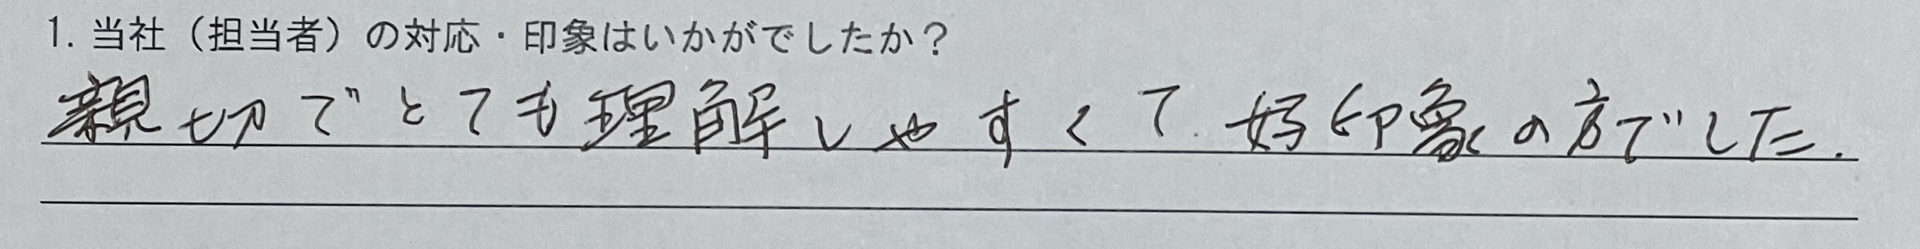 1. 当社（担当者）の対応・印象はいかがでしたか？
親切でとても理解しやすくて好印象の方でした.